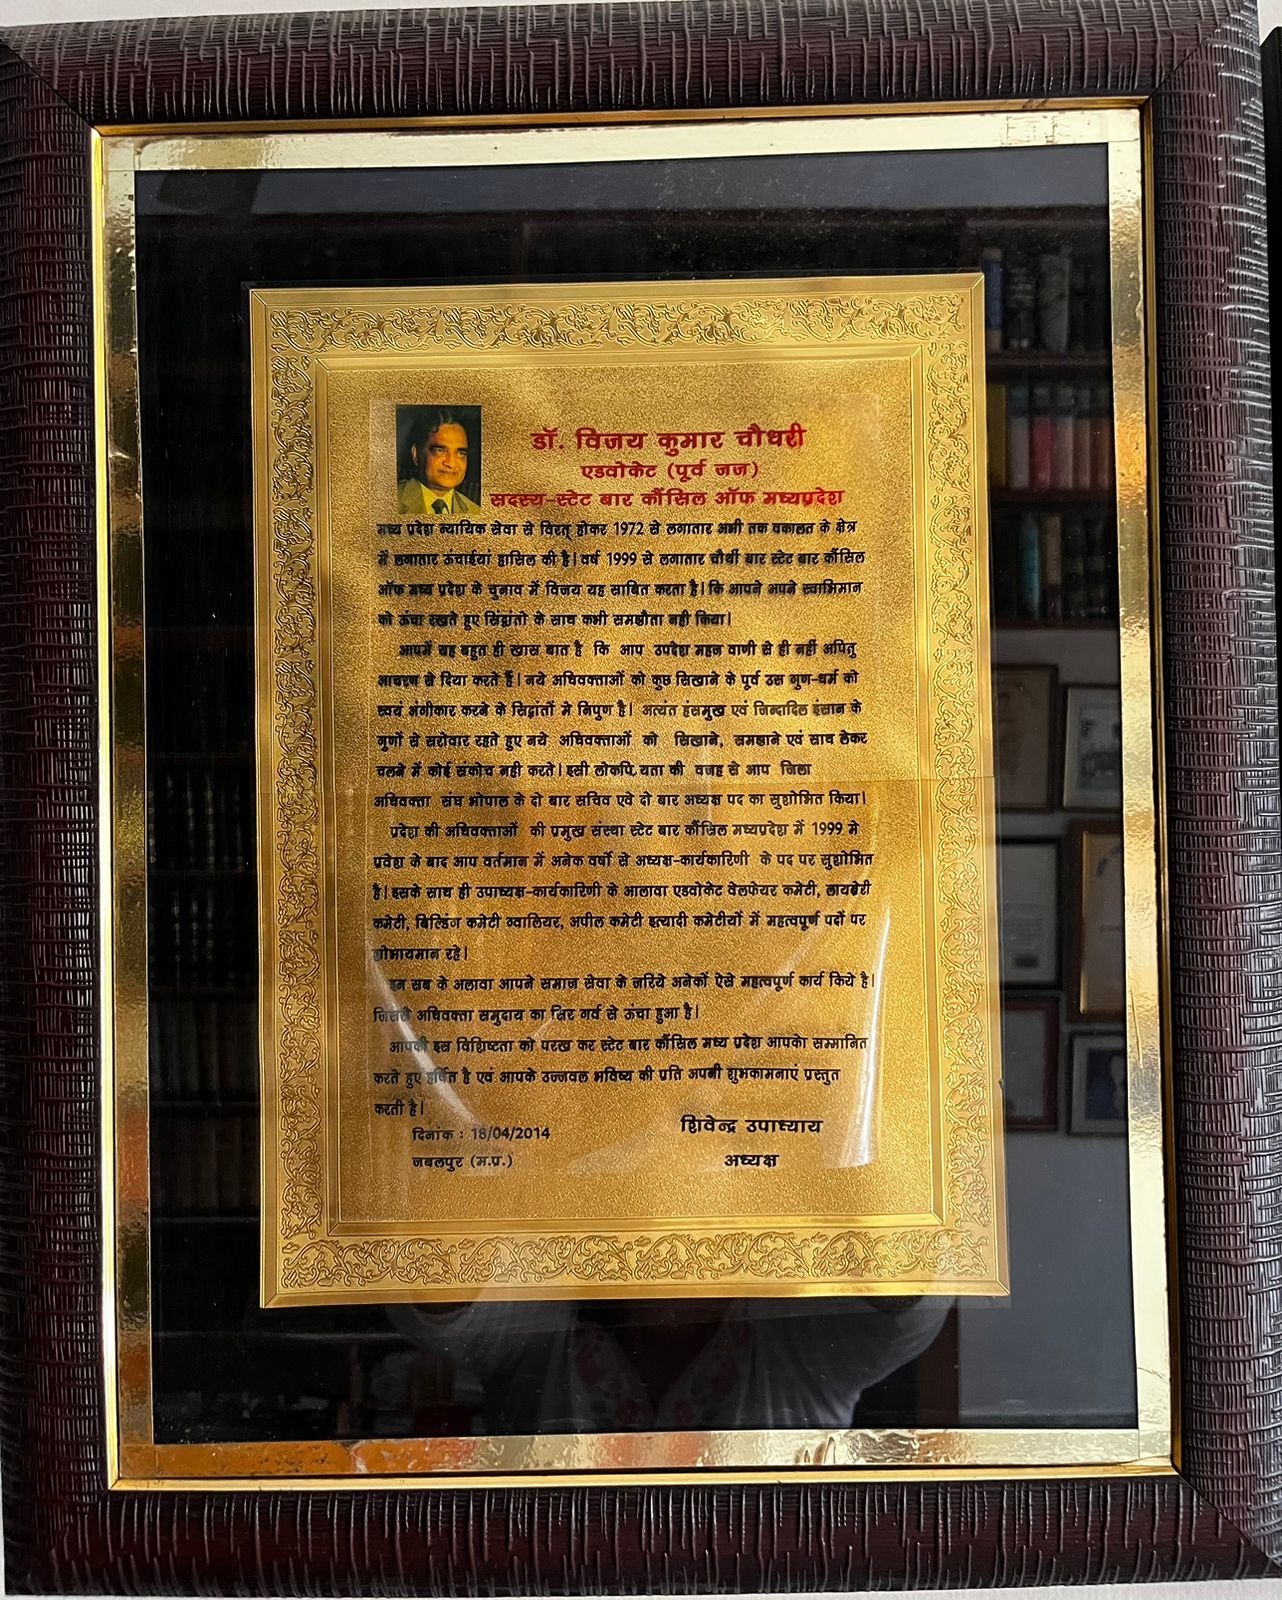 डॉ. विजय कुमार चौधरी
एडवोकेट (पूर्व जज)
सदस्य-स्टेट बार कौंसिल ऑफ मध्यप्रदेश
मध्य प्रदेश न्यायिक सेवा से विरत् होकर 1972 से लगातार अभी तक वकालत के क्षेत्र
में लगातार ऊंचाईयां हासिल की है। वर्ष 1999 से लगातार चौथी बार स्टेट बार कौंसिल
ऑफ मध्य प्रदेश के चुनाव में विजय यह साबित करता है। कि आपने अपने स्वाभिमान
को ऊंचा रखते हुए सिंद्रांतो के साथ कभी समझौता नही किया।
आपमें यह बहुत ही खास बात है कि आप उपदेश महन वाणी से ही नहीं अपितु
आचरण से दिया करते हैं। नये अधिवक्ताओं को कुछ सिखाने के पूर्व उस गुण-धर्म को
स्वयं अंगीकार करने के सिद्रांतों मे निपुण है। अत्यंत हंसमुख एवं जिन्दादिल इंसान के
गुणों से सरोवार रहते हुए नये अधिवक्ताओं को सिखाने, समझाने एवं साथ लेकर
चलने में कोई संकोच नही करते। इसी लोकप्रि.यता की वजह से आप जिला
अधिवक्ता संघ भोपाल के दो बार सचिव एवे दो बार अध्यक्ष पद का सुशोभित किया।
प्रदेश की अधिवक्ताओं की प्रमुख संस्था स्टेट बार कौंसिल मध्यप्रदेश में 1999 मे
प्रवेश के बाद आप वर्तमान में अनेक वर्षो से अध्यक्ष-कार्यकारिणी के पद पर सुशोभित
है। इसके साथ ही उपाध्यक्ष-कार्यकारिणी के आलावा एडवोकेट वेलफेयर कमेटी, लायब्रेरी
कमेटी, बिल्डिंग कमेटी ग्वालियर, अपील कमेटी इत्यादी कमेटीयों में महत्वपूर्ण पदों पर
शोभायमान रहे।
इन सब के अलावा आपने समाज सेवा के जरिये अनेकों ऐसे महत्वपूर्ण कार्य किये है।
जिससे अधिवक्ता समुदाय का सिर गर्व से ऊंचा हुआ है।
आपकी इस विशिष्टता को परख कर स्टेट बार कौंसिल मध्य प्रदेश आपकेा सम्मानित
करते हुए हर्षित है एवं आपके उज्जवल भविष्य की प्रति अपनी शुभकामनाएं प्रस्तुत
करती है।
दिनांक : 18/04/2014
जबलपुर (म.प्र.)
शिवेन्द्र उपाध्याय
अध्यक्ष